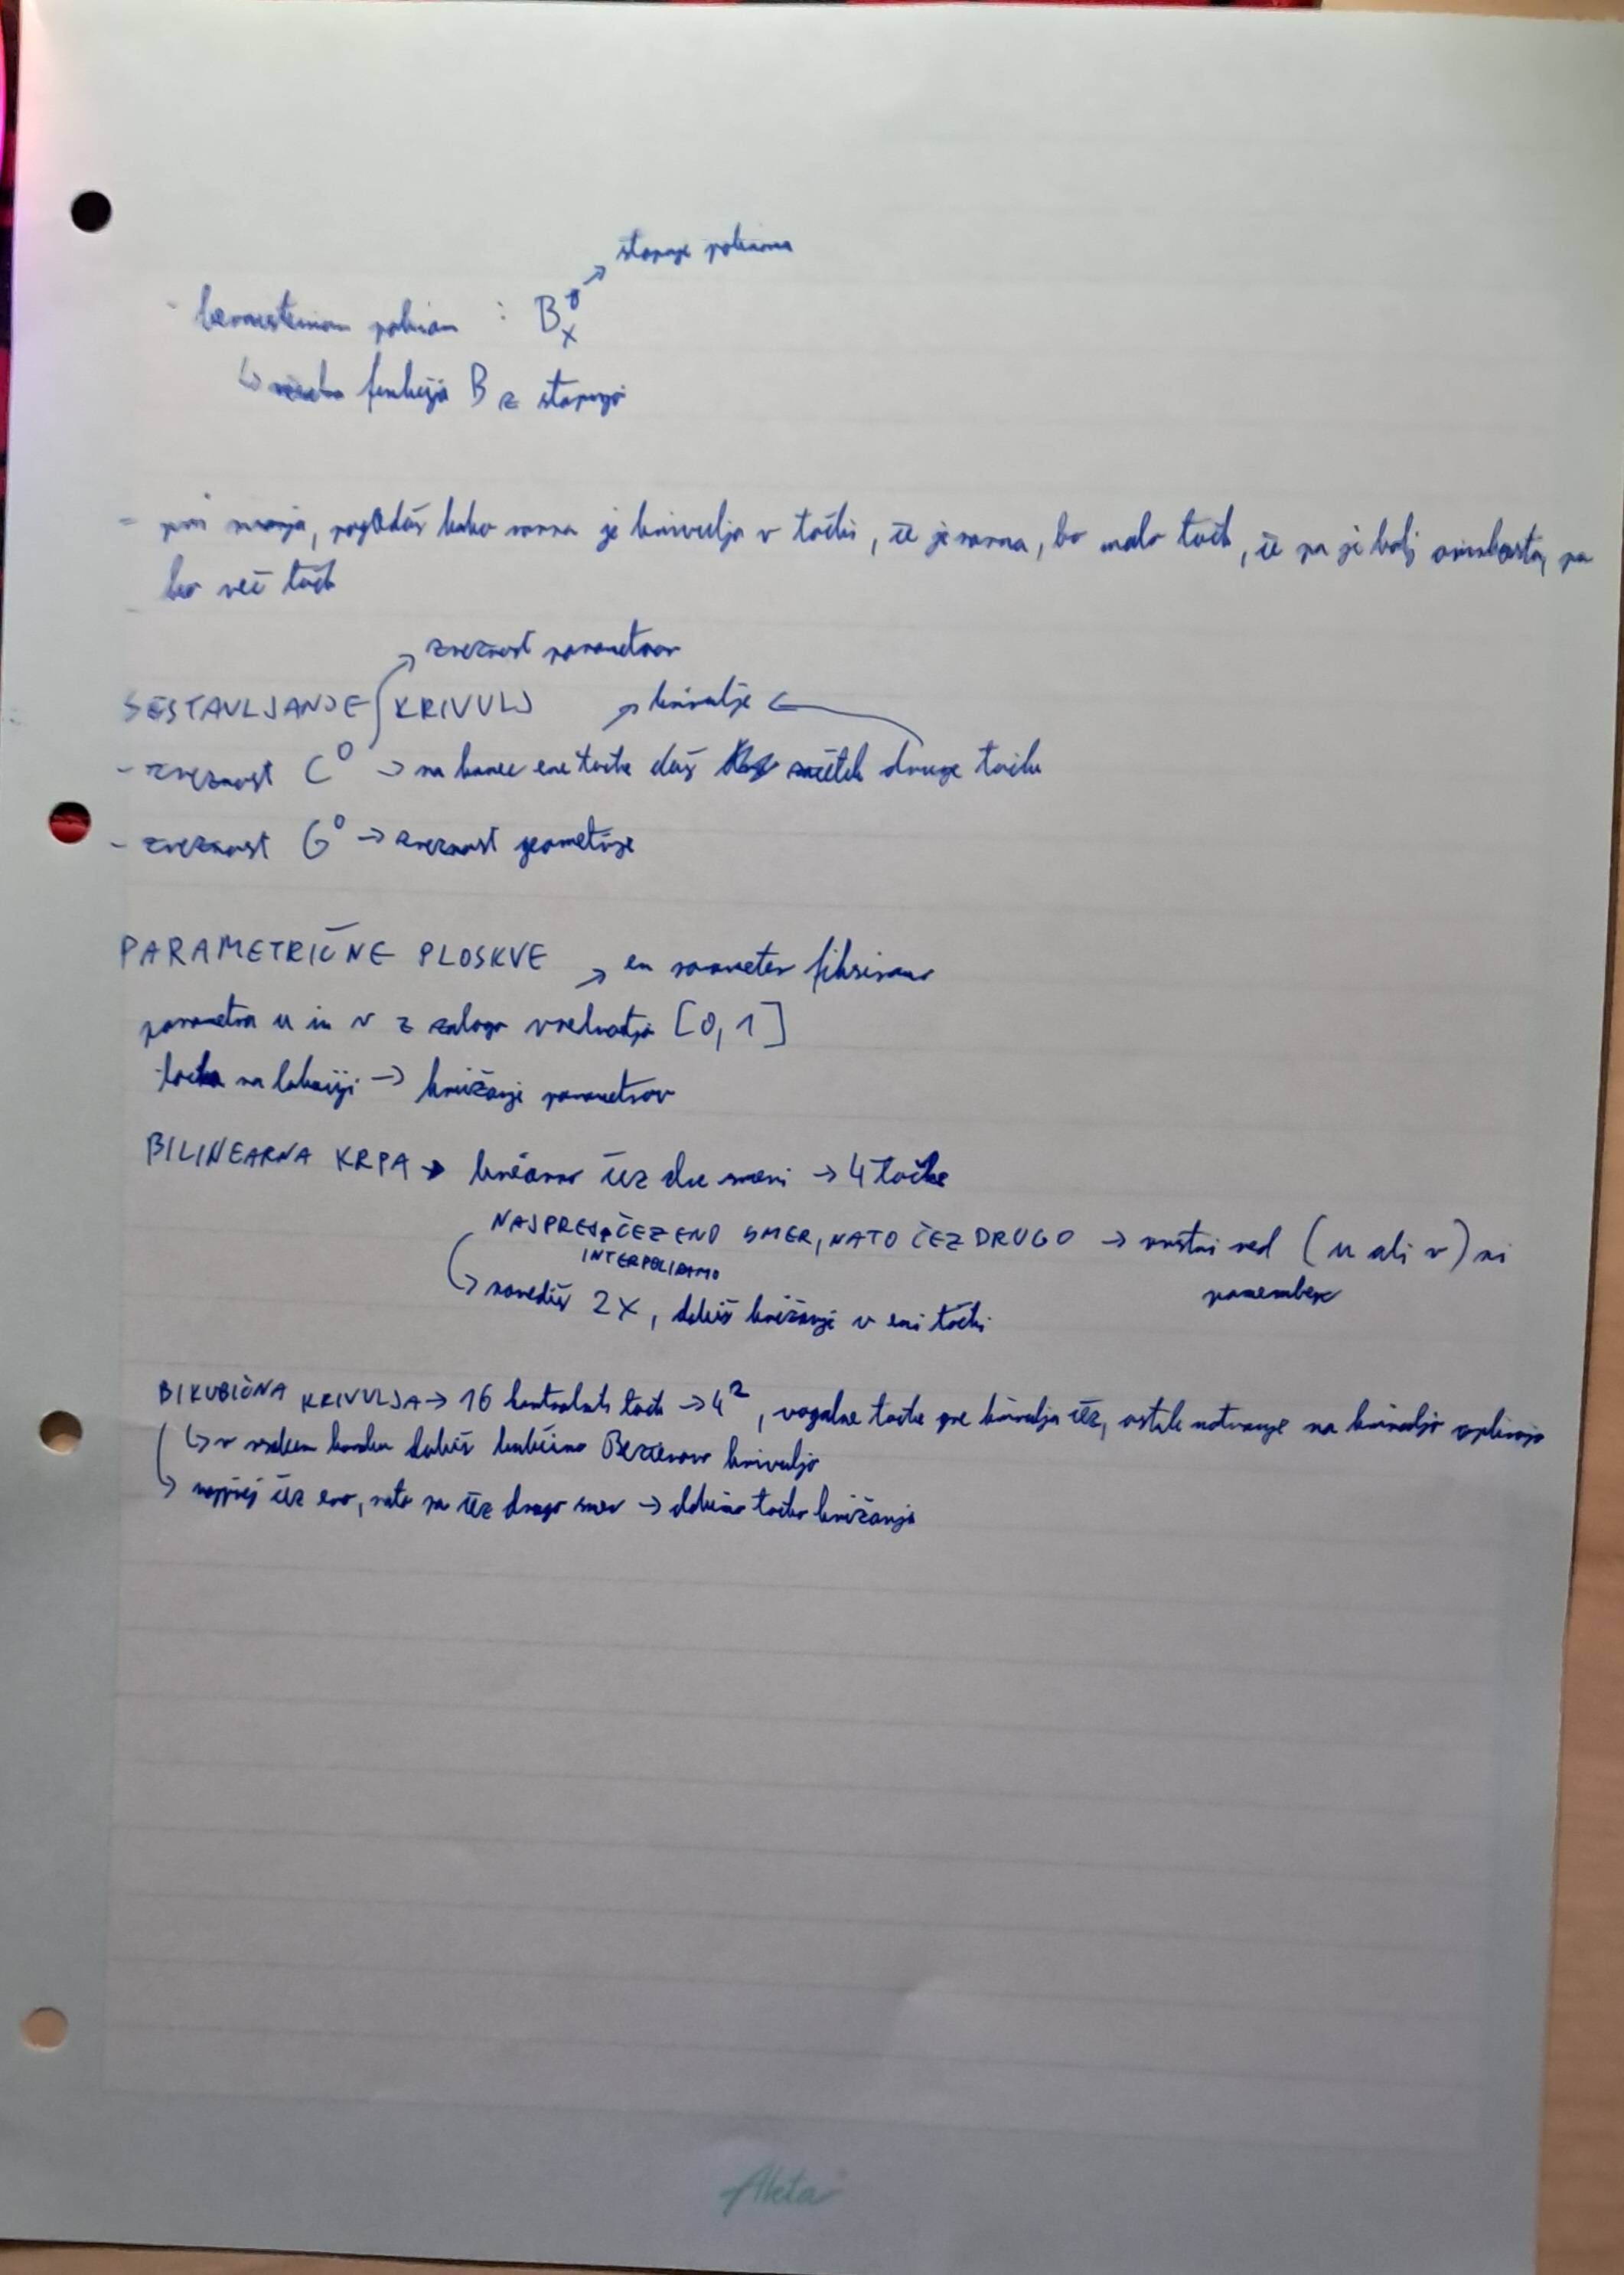 stopnje polinoma
- bernsteinov polinom : B
↳ funkcija B z stopnjo
- pri risanju, pogledaš kako ravna je krivulja v točki, če je ravna, bo malo točk, če pa je bolj ovinkasta, pa
bo več točk
zveznost parametrov
SESTAVLJANJE KRIVULJ
krivulje
- zveznost C⁰ → na konec ene točke daš začetek druge točke
- zveznost G⁰ → zveznost geometrije
PARAMETRIČNE PLOSKVE
→ en parameter fiksiramo
parametra u in v z zalogo vrednosti [0, 1]
točka na lokaciji → križanje parametrov
BILINEARNA KRPA → linearno čez dve smeri → 4 točke
NAJPREJ ČEZ ENO SMER, NATO ČEZ DRUGO → vrstni red (u ali v) ni
INTERPOLIRAMO
pomemben
↳ narediš 2x, dobiš križanje v eni točki
BIKUBIČNA KRIVULJA → 16 kontrolnih točk → 4², vogalne točke gre krivulja čez, ostale notranje na krivuljo vplivajo
↳ v vsakem koraku dobiš kubično Bezierovo krivuljo
↳ najprej čez eno, nato pa čez drugo smer → dobimo točko križanja
Aleta